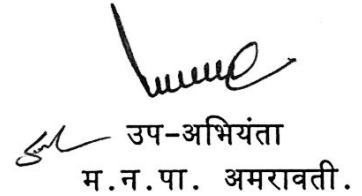 उप-अभियंता
म.न.पा. अमरावती.